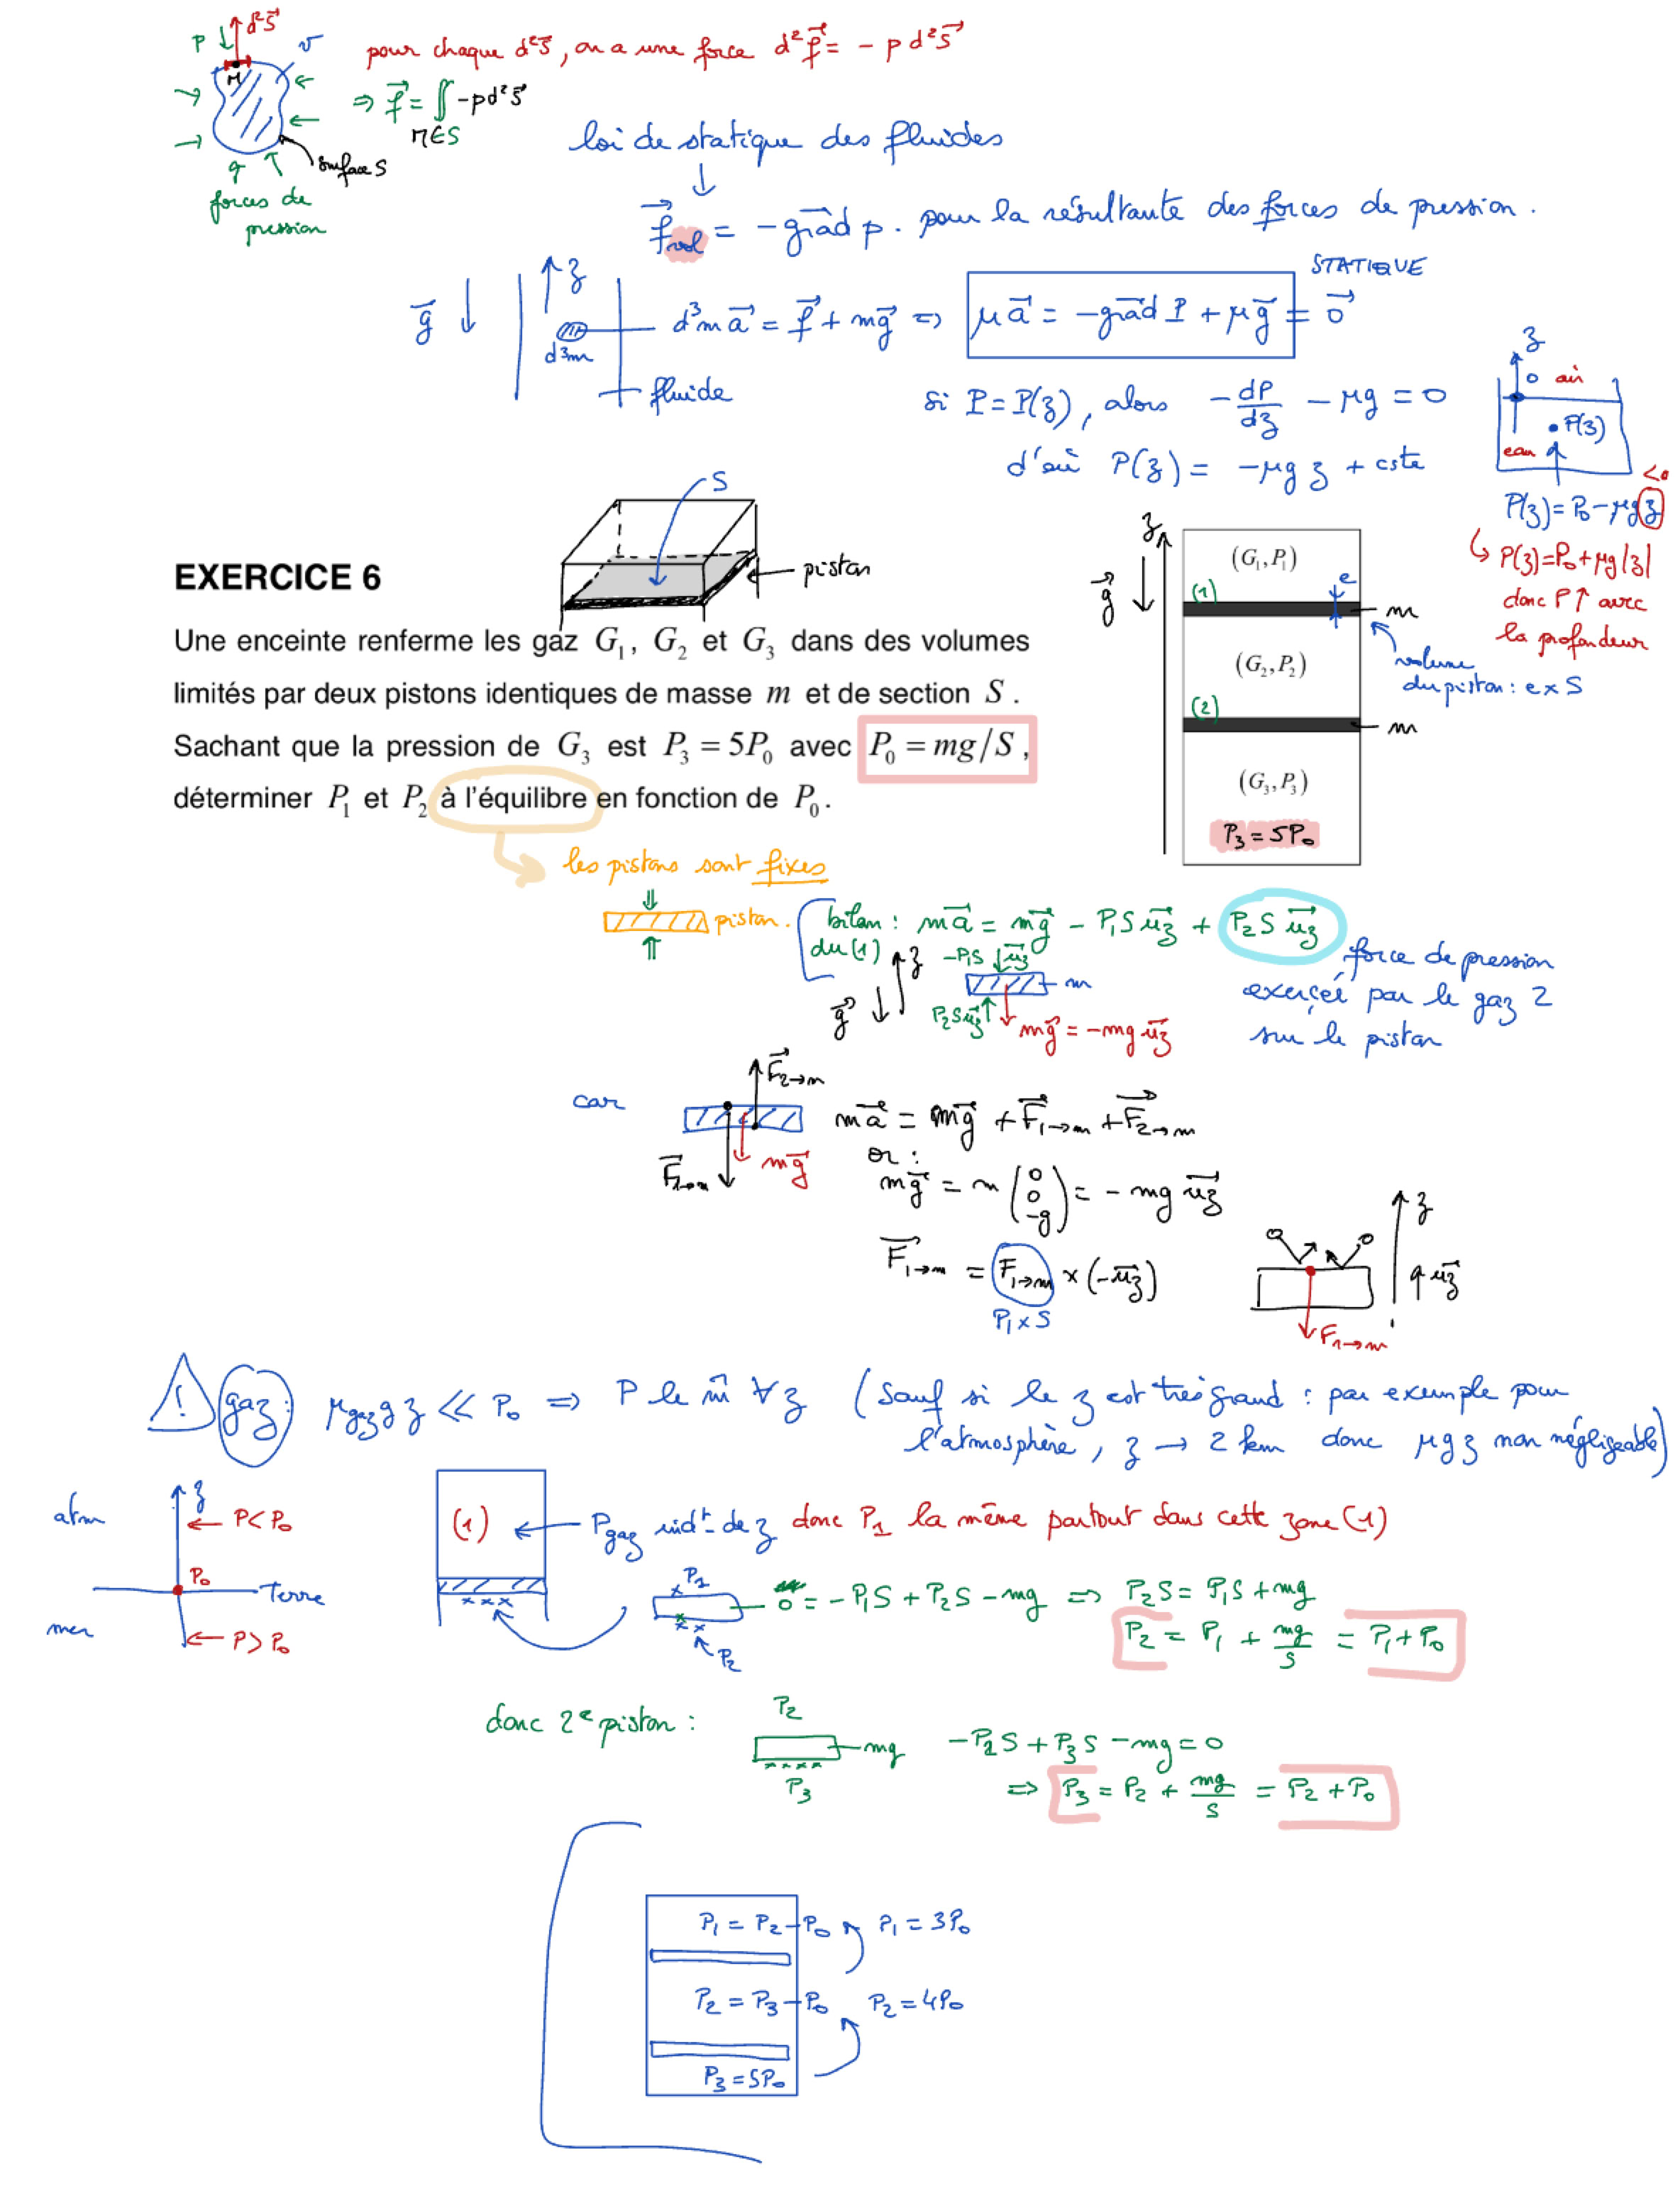 p d²S⃗ v
M
surface S
forces de
pression
pour chaque d²S⃗, on a une force d²f⃗ = - p d²S⃗
⇒ f⃗ = ∬ -pd²S⃗
M∈S
loi de statique des fluides
↓
f⃗vol = - grad⃗ p . pour la résultante des forces de pression .
STATIQUE
g⃗ z
d³m
fluide
d³m a⃗ = f⃗ + mg⃗ ⇒ μa⃗ = -grad⃗ P + μg⃗ = 0⃗
si P = P(z), alors - dP/dz - μg = 0
d'où P(z) = -μg z + cste
z
0 air
P(z)
eau
<0
P(z) = P₀ - μgz
↳ P(z)=P₀+μg|z|
donc P↑ avec
la profondeur
S
piston
z
g⃗
(G₁, P₁)
(1) e m
(G₂, P₂)
volume
du piston : e x S
(2) m
(G₃, P₃)
P₃ = 5P₀
EXERCICE 6
Une enceinte renferme les gaz G₁, G₂ et G₃ dans des volumes
limités par deux pistons identiques de masse m et de section S .
Sachant que la pression de G₃ est P₃ = 5P₀ avec P₀ = mg/S ,
déterminer P₁ et P₂ à l'équilibre en fonction de P₀ .
les pistons sont fixes
piston.
bilan : ma⃗ = mg⃗ - P₁S u⃗z + P₂S u⃗z
du (1)
force de pression
exercée par le gaz 2
sur le piston
z -P₁S u⃗z
m
g⃗ P₂S u⃗z mg⃗ = -mg u⃗z
car
F⃗2→m
F⃗1→m mg⃗
ma⃗ = mg⃗ + F⃗1→m + F⃗2→m
or :
mg⃗ = m (0 0 -g) = - mg u⃗z
F⃗1→m = F1→m x (-u⃗z)
P₁ x S
z
u⃗z
F1→m
! gaz : μgaz g z ≪ P₀ ⇒ P le m̂ ∀z (sauf si le z est très grand : par exemple pour
l'atmosphère, z → 2 km donc μgz non négligeable)
atm z P < P₀
P₀ Terre
mer P > P₀
(1) ← Pgaz indt de z donc P₁ la même partout dans cette zone (1)
P₁
P₂
0 = - P₁S + P₂S - mg ⇒ P₂S = P₁S + mg
P₂ = P₁ + mg/S = P₁ + P₀
donc 2e piston :
P₂
mg
P₃
-P₂S + P₃S - mg = 0
⇒ P₃ = P₂ + mg/S = P₂ + P₀
P₁ = P₂ - P₀ P₁ = 3P₀
P₂ = P₃ - P₀ P₂ = 4P₀
P₃ = 5P₀